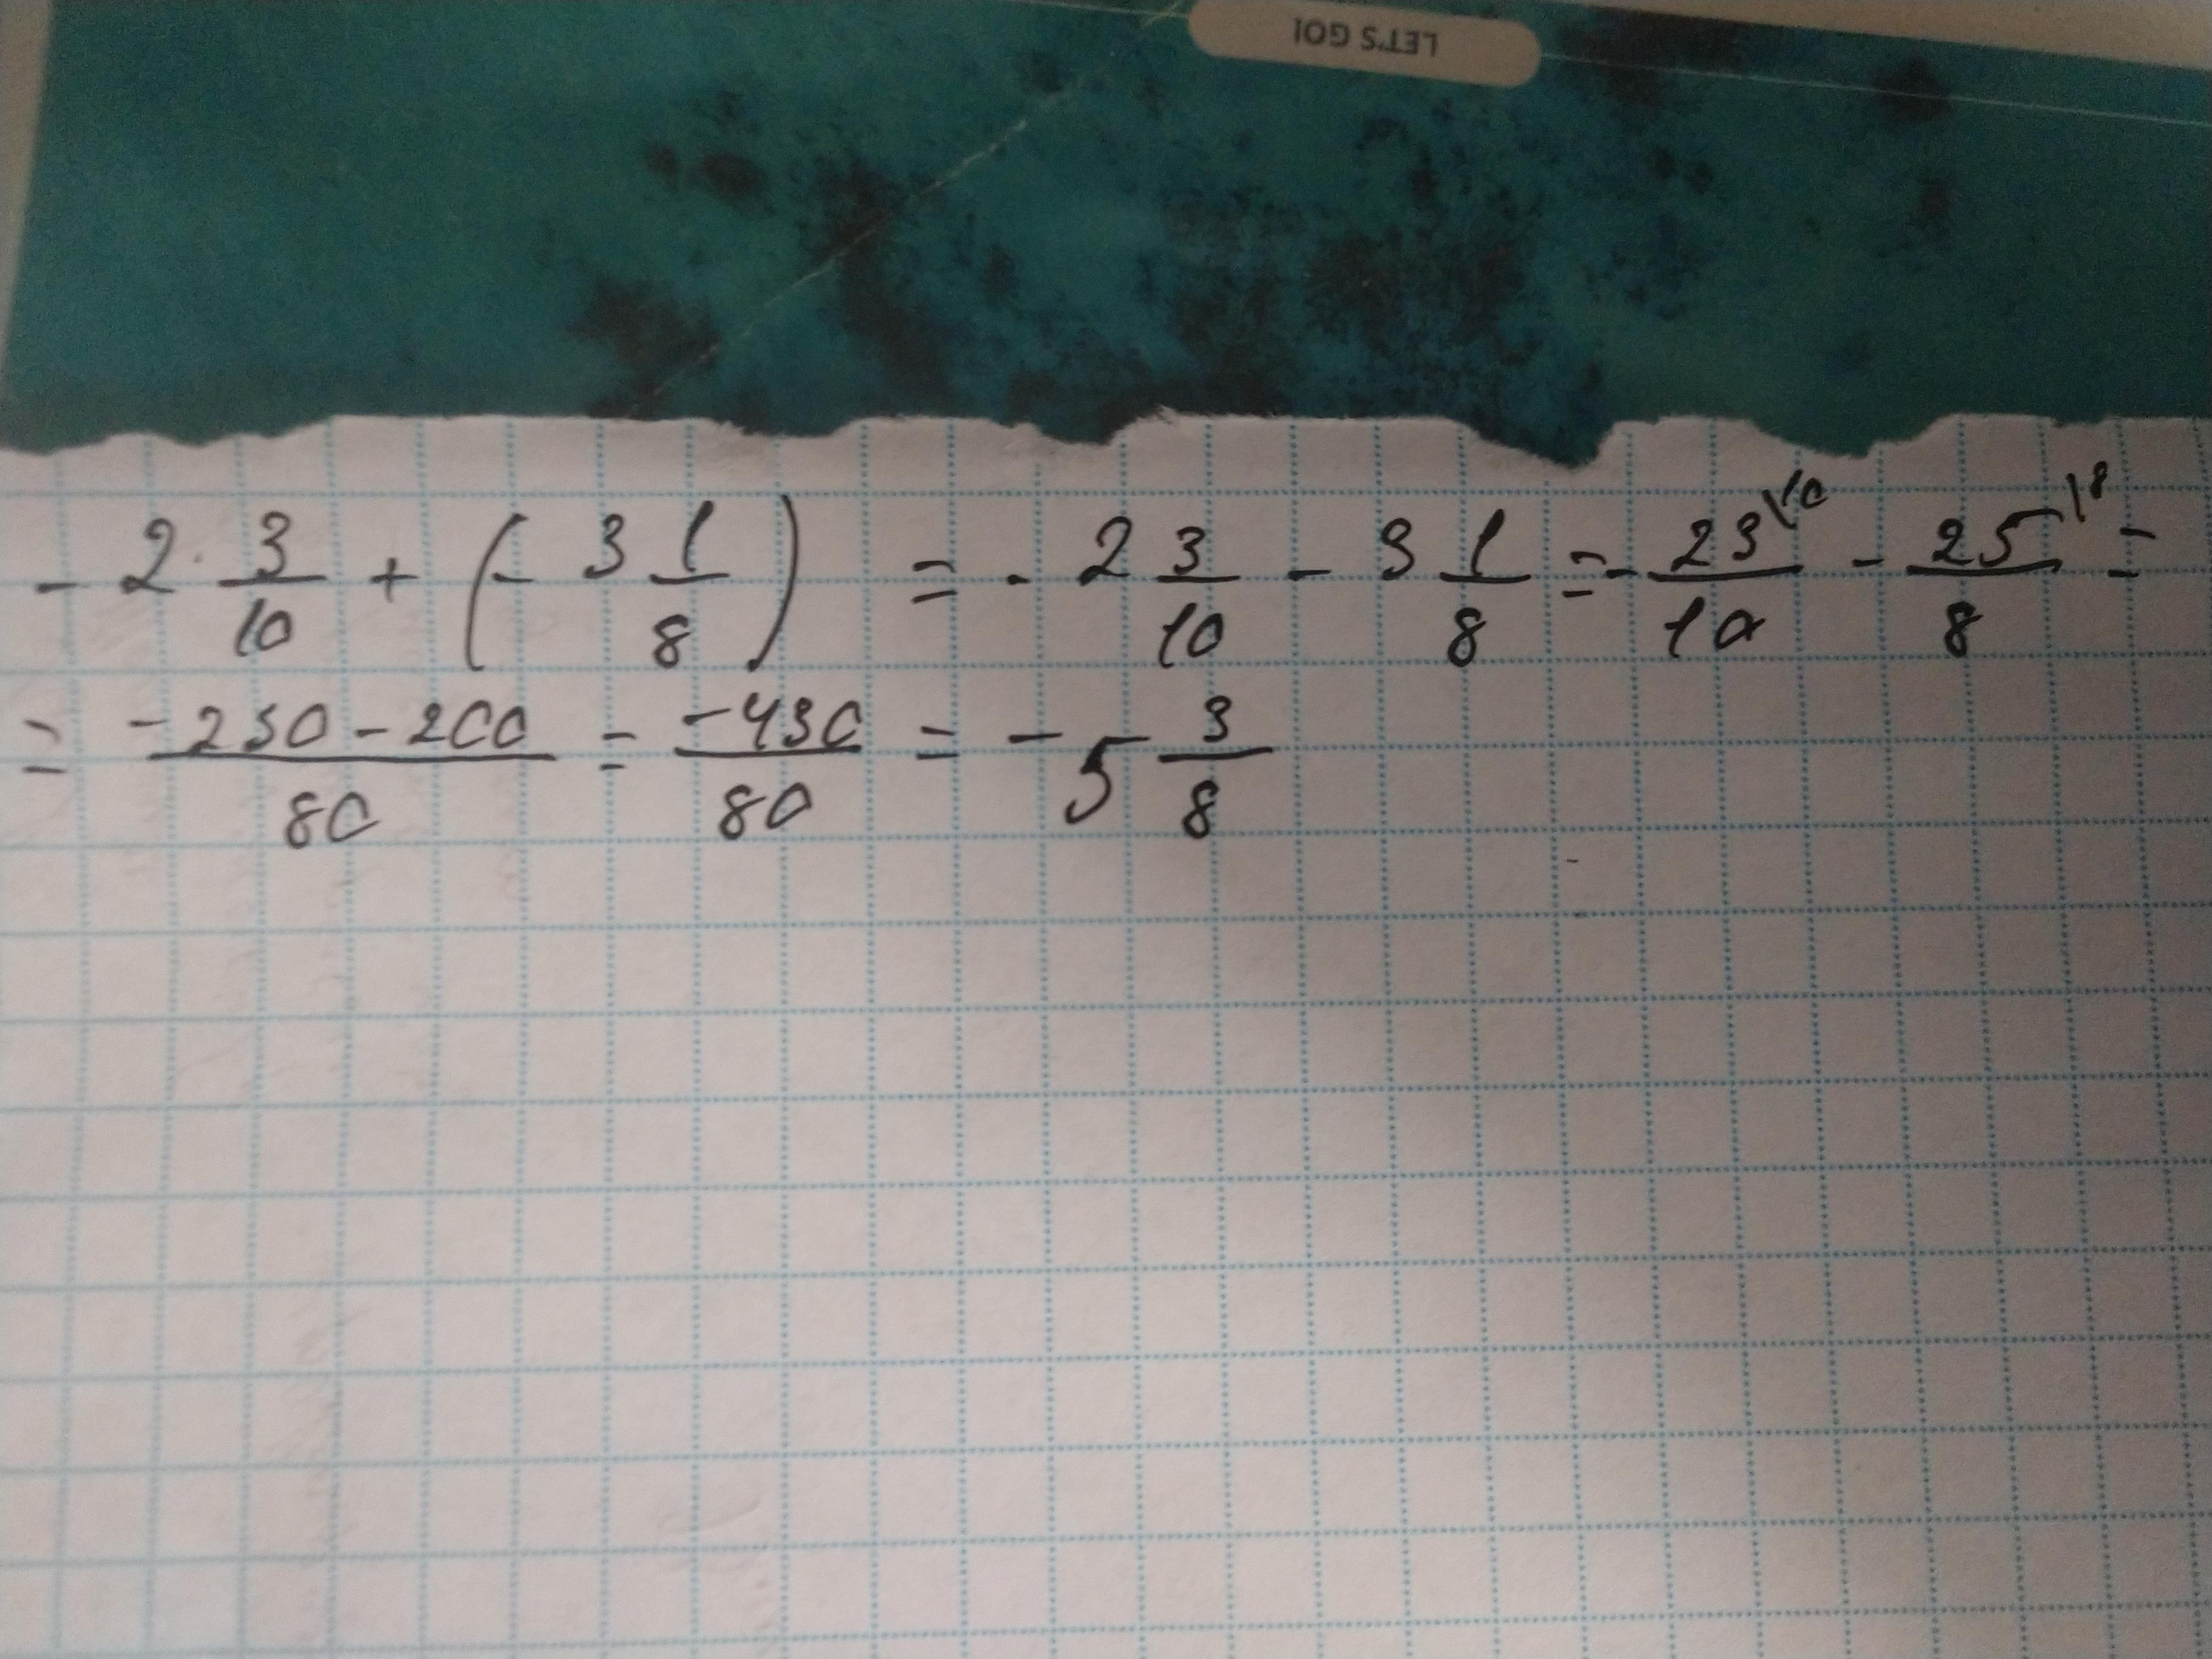 LET'S GO!
- 2 3/10 + (- 3 1/8) = - 2 3/10 - 3 1/8 = - 23\10/10 - 25\8/8 =
= -230 - 200/80 = -430/80 = - 5 3/8